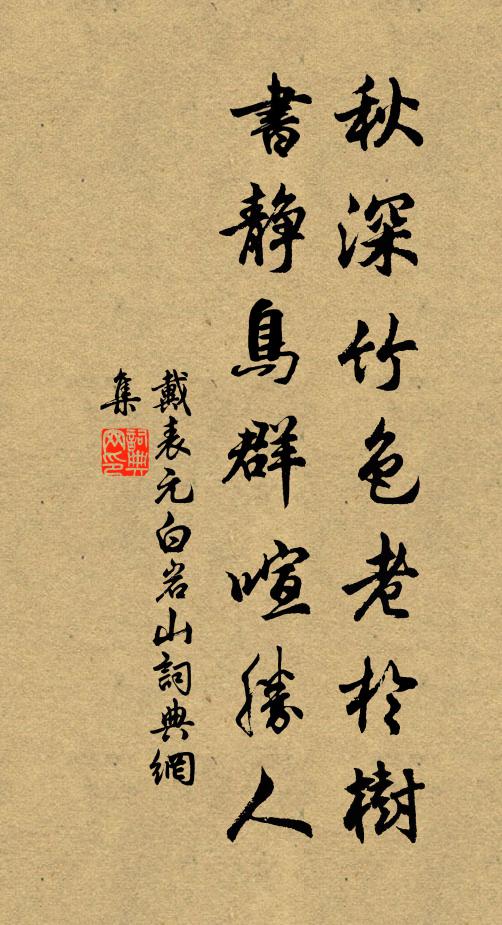 秋深竹色老於樹
書靜鳥群喧勝人
戴表元白岩山詞典網
集
詞典網印